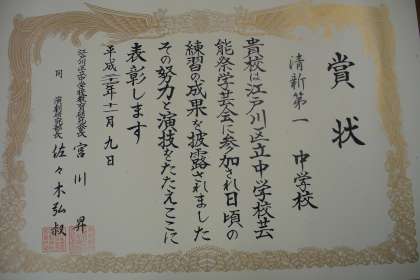 賞状
清新第一中学校
貴校は江戸川区立中学校芸
能祭学芸会に参加され日頃の
練習の成果を披露されました
その努力と演技をたたえここに
表彰します
平成二十一年十一月九日
宮川昇
同 演劇研究部長 佐々木弘叔